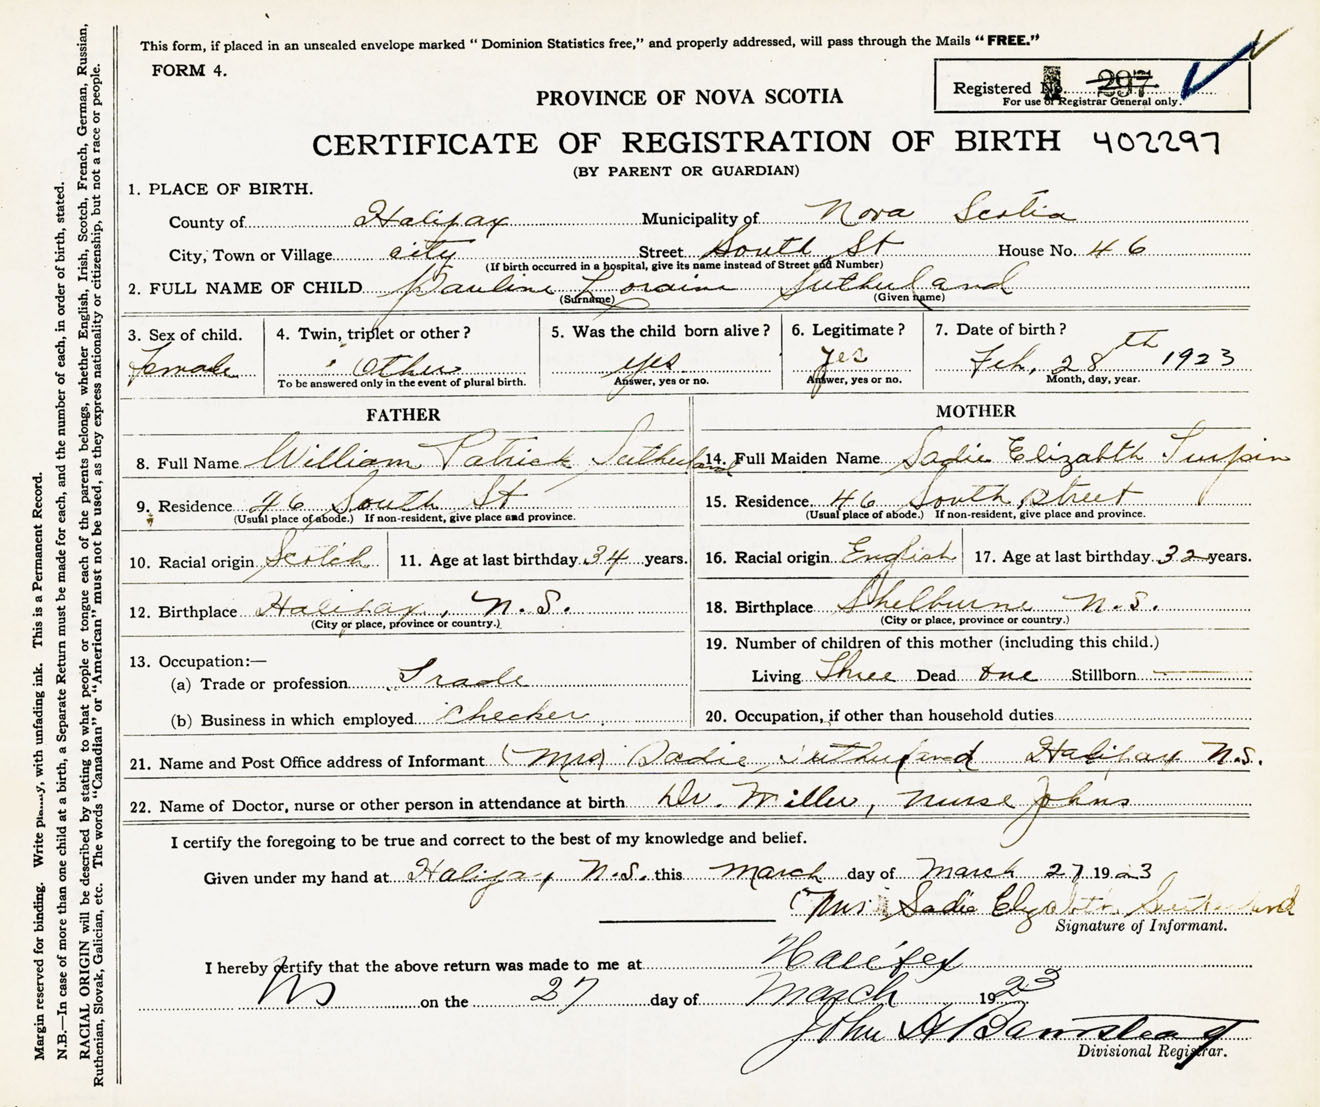 This form, if placed in an unsealed envelope marked " Dominion Statistics free," and properly addressed, will pass through the Mails "FREE."
FORM 4.
Registered No. 297
For use of Registrar General only.
PROVINCE OF NOVA SCOTIA
CERTIFICATE OF REGISTRATION OF BIRTH 402297
(BY PARENT OR GUARDIAN)
1. PLACE OF BIRTH.
County of Halifax Municipality of Nova Scotia
City, Town or Village city Street South St House No. 46
(If birth occurred in a hospital, give its name instead of Street and Number)
2. FULL NAME OF CHILD Pauline Loraine Sutherland
(Surname) (Given name)
3. Sex of child. 4. Twin, triplet or other? 5. Was the child born alive? 6. Legitimate? 7. Date of birth?
female Other yes yes Feb, 28th 1923
To be answered only in the event of plural birth. Answer, yes or no. Answer, yes or no. Month, day, year.
FATHER MOTHER
8. Full Name William Patrick Sutherland 14. Full Maiden Name Sadie Elizabth Turpin
9. Residence 46 South St 15. Residence 46 South Street
(Usual place of abode.) If non-resident, give place and province. (Usual place of abode.) If non-resident, give place and province.
10. Racial origin Scotch 11. Age at last birthday 34 years. 16. Racial origin English 17. Age at last birthday 32 years.
12. Birthplace Halifax, N.S. 18. Birthplace Shelburne N.S.
(City or place, province or country.) (City or place, province or country.)
13. Occupation:— 19. Number of children of this mother (including this child.)
(a) Trade or profession Trade Living Three Dead one Stillborn —
(b) Business in which employed Checker 20. Occupation, if other than household duties
21. Name and Post Office address of Informant (Mrs) Sadie Sutherland Halifax N.S.
22. Name of Doctor, nurse or other person in attendance at birth Dr. Miller, Nurse Johns
I certify the foregoing to be true and correct to the best of my knowledge and belief.
Given under my hand at Halifax N.S. this March day of March 27 1923
(Mrs Sadie Elizabeth Sutherland
Signature of Informant.
I hereby certify that the above return was made to me at Halifax
NS on the 27 day of March 1923
John H Barnstead
Divisional Registrar.
Margin reserved for binding. Write , with unfading ink. This is a Permanent Record.
N.B.—In case of more than one child at a birth, a Separate Return must be made for each, and the number of each, in order of birth, stated.
RACIAL ORIGIN will be described by stating to what people or tongue each of the parents belongs, whether English, Irish, Scotch, French, German, Russian,
Ruthenian, Slovak, Galician, etc. The words "Canadian" or "American" must not be used, as they express nationality or citizenship, but not a race or people.